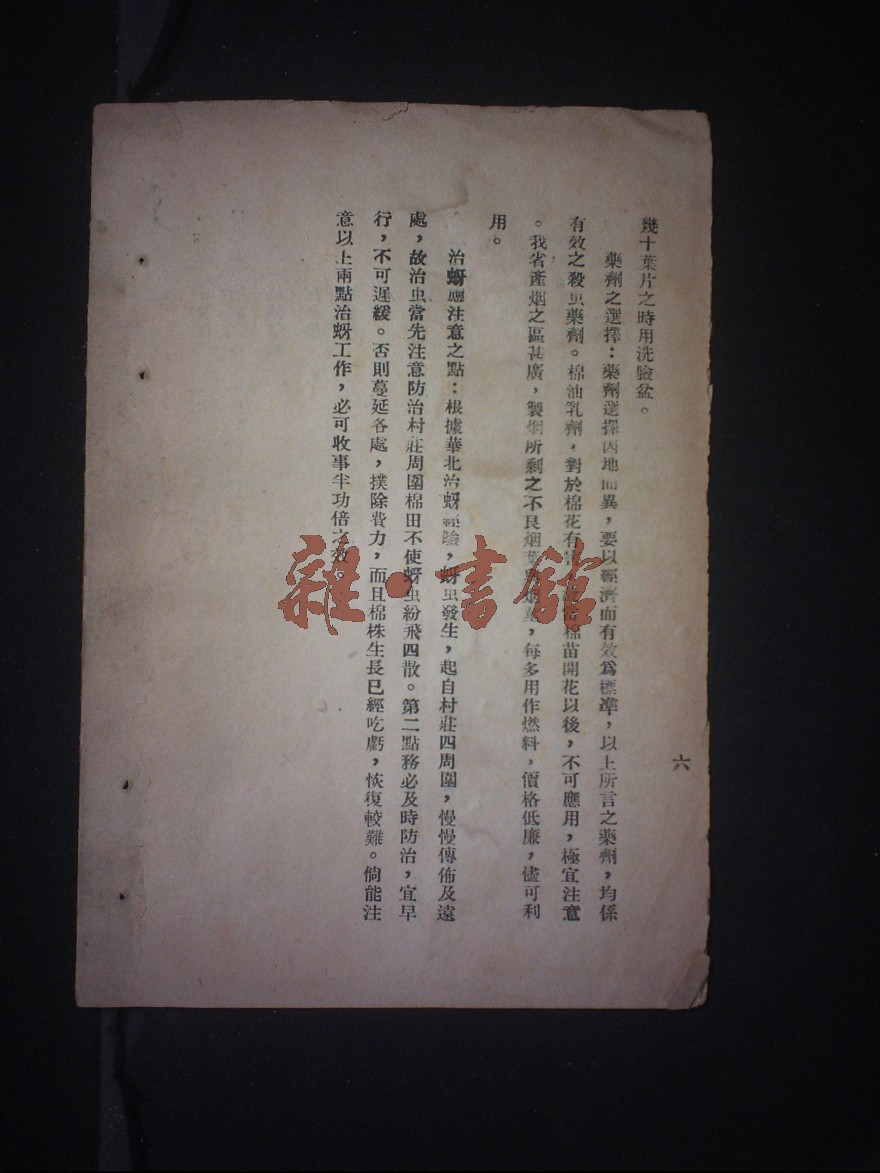 幾十葉片之時用洗臉盆。
藥劑之選擇：藥劑選擇因地而異，要以經濟而有效爲標準，以上所言之藥劑，均係
有效之殺虫藥劑。棉油乳劑，對於棉花有害，棉苗開花以後，不可應用，極宜注意
。我省產烟之區甚廣，製烟所剩之不良烟葉，每多用作燃料，價格低廉，儘可利
用。
治蚜應注意之點：根據華北治蚜經驗，蚜虫發生，起自村莊四周圍，慢慢傳佈及遠
處，故治虫當先注意防治村莊周圍棉田不使蚜虫紛飛四散。第二點務必及時防治，宜早
行，不可遲緩。否則蔓延各處，撲除費力，而且棉株生長已經吃虧，恢復較難。倘能注
意以上兩點治蚜工作，必可收事半功倍之效。
六
雜·書館